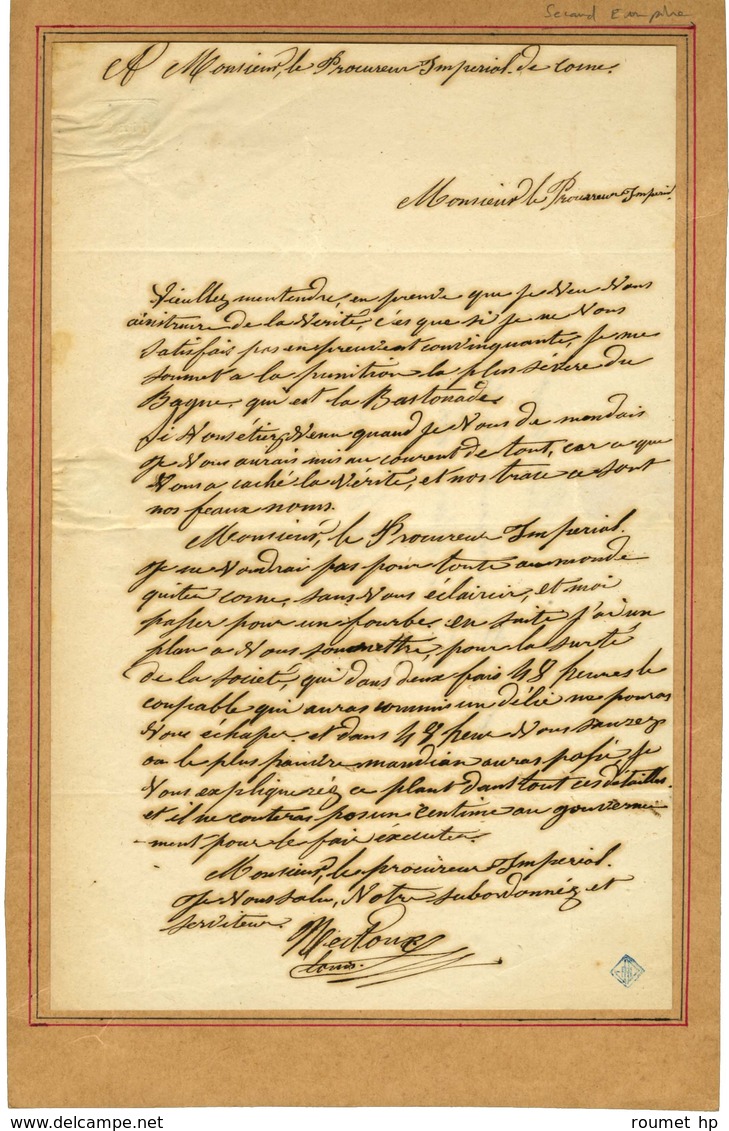 Second Empire
A Monsieur, le Procureur Imperial de Cosne.
Monsieur le Procureur Imperial
Vieullez mentendre, en preuve que je Veu Vous
ainstruire de la Vérité, c'es que si je ne Vous
Satisfais pas en preuvent convinquante, je me
soumet a la punition la plus sévère du
Bagne, qui est la Bastonade
Si Vous étiez Venu quand je Vous de mendais
Je Vous aurais mis au courent de tout, car a que
Vous a caché la Vérité, et nos trace ce sont
nos feaux noms.
Monsieur, le Procureur Imperial.
Je ne Voudrai pas pour toute au monde
quitee cosne, sans Vous éclaircir, et moi
passer pour un fourbe, en suite j'ai un
plan a Vous soumettre, pour la surté
de la societé, qui dans deux fois 48 heures le
coupable qui auras commis un délie ne pouras
Vous échaper et dans 48 heure Vous saurez
ou le plus pauvre mandian auras passé, je
Vous expliqueréz ce plant dans tout ces détailles.
et il ne couteras pas un Centime au gouverne
ment pour le fair éxecuter.
Monsieur, le procureur Imperial.
Je Vous salu, Votre subordonnéz et
Serviteur
Louis.
www.delcampe.net
roumet hp